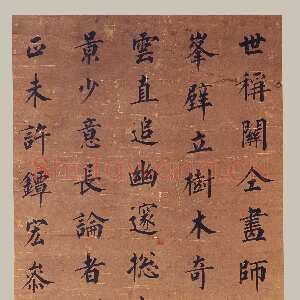 世稱關仝畫師
峯壁立樹木奇
雲直追幽邃揔
景少意長論者
正未許鐔宏叅